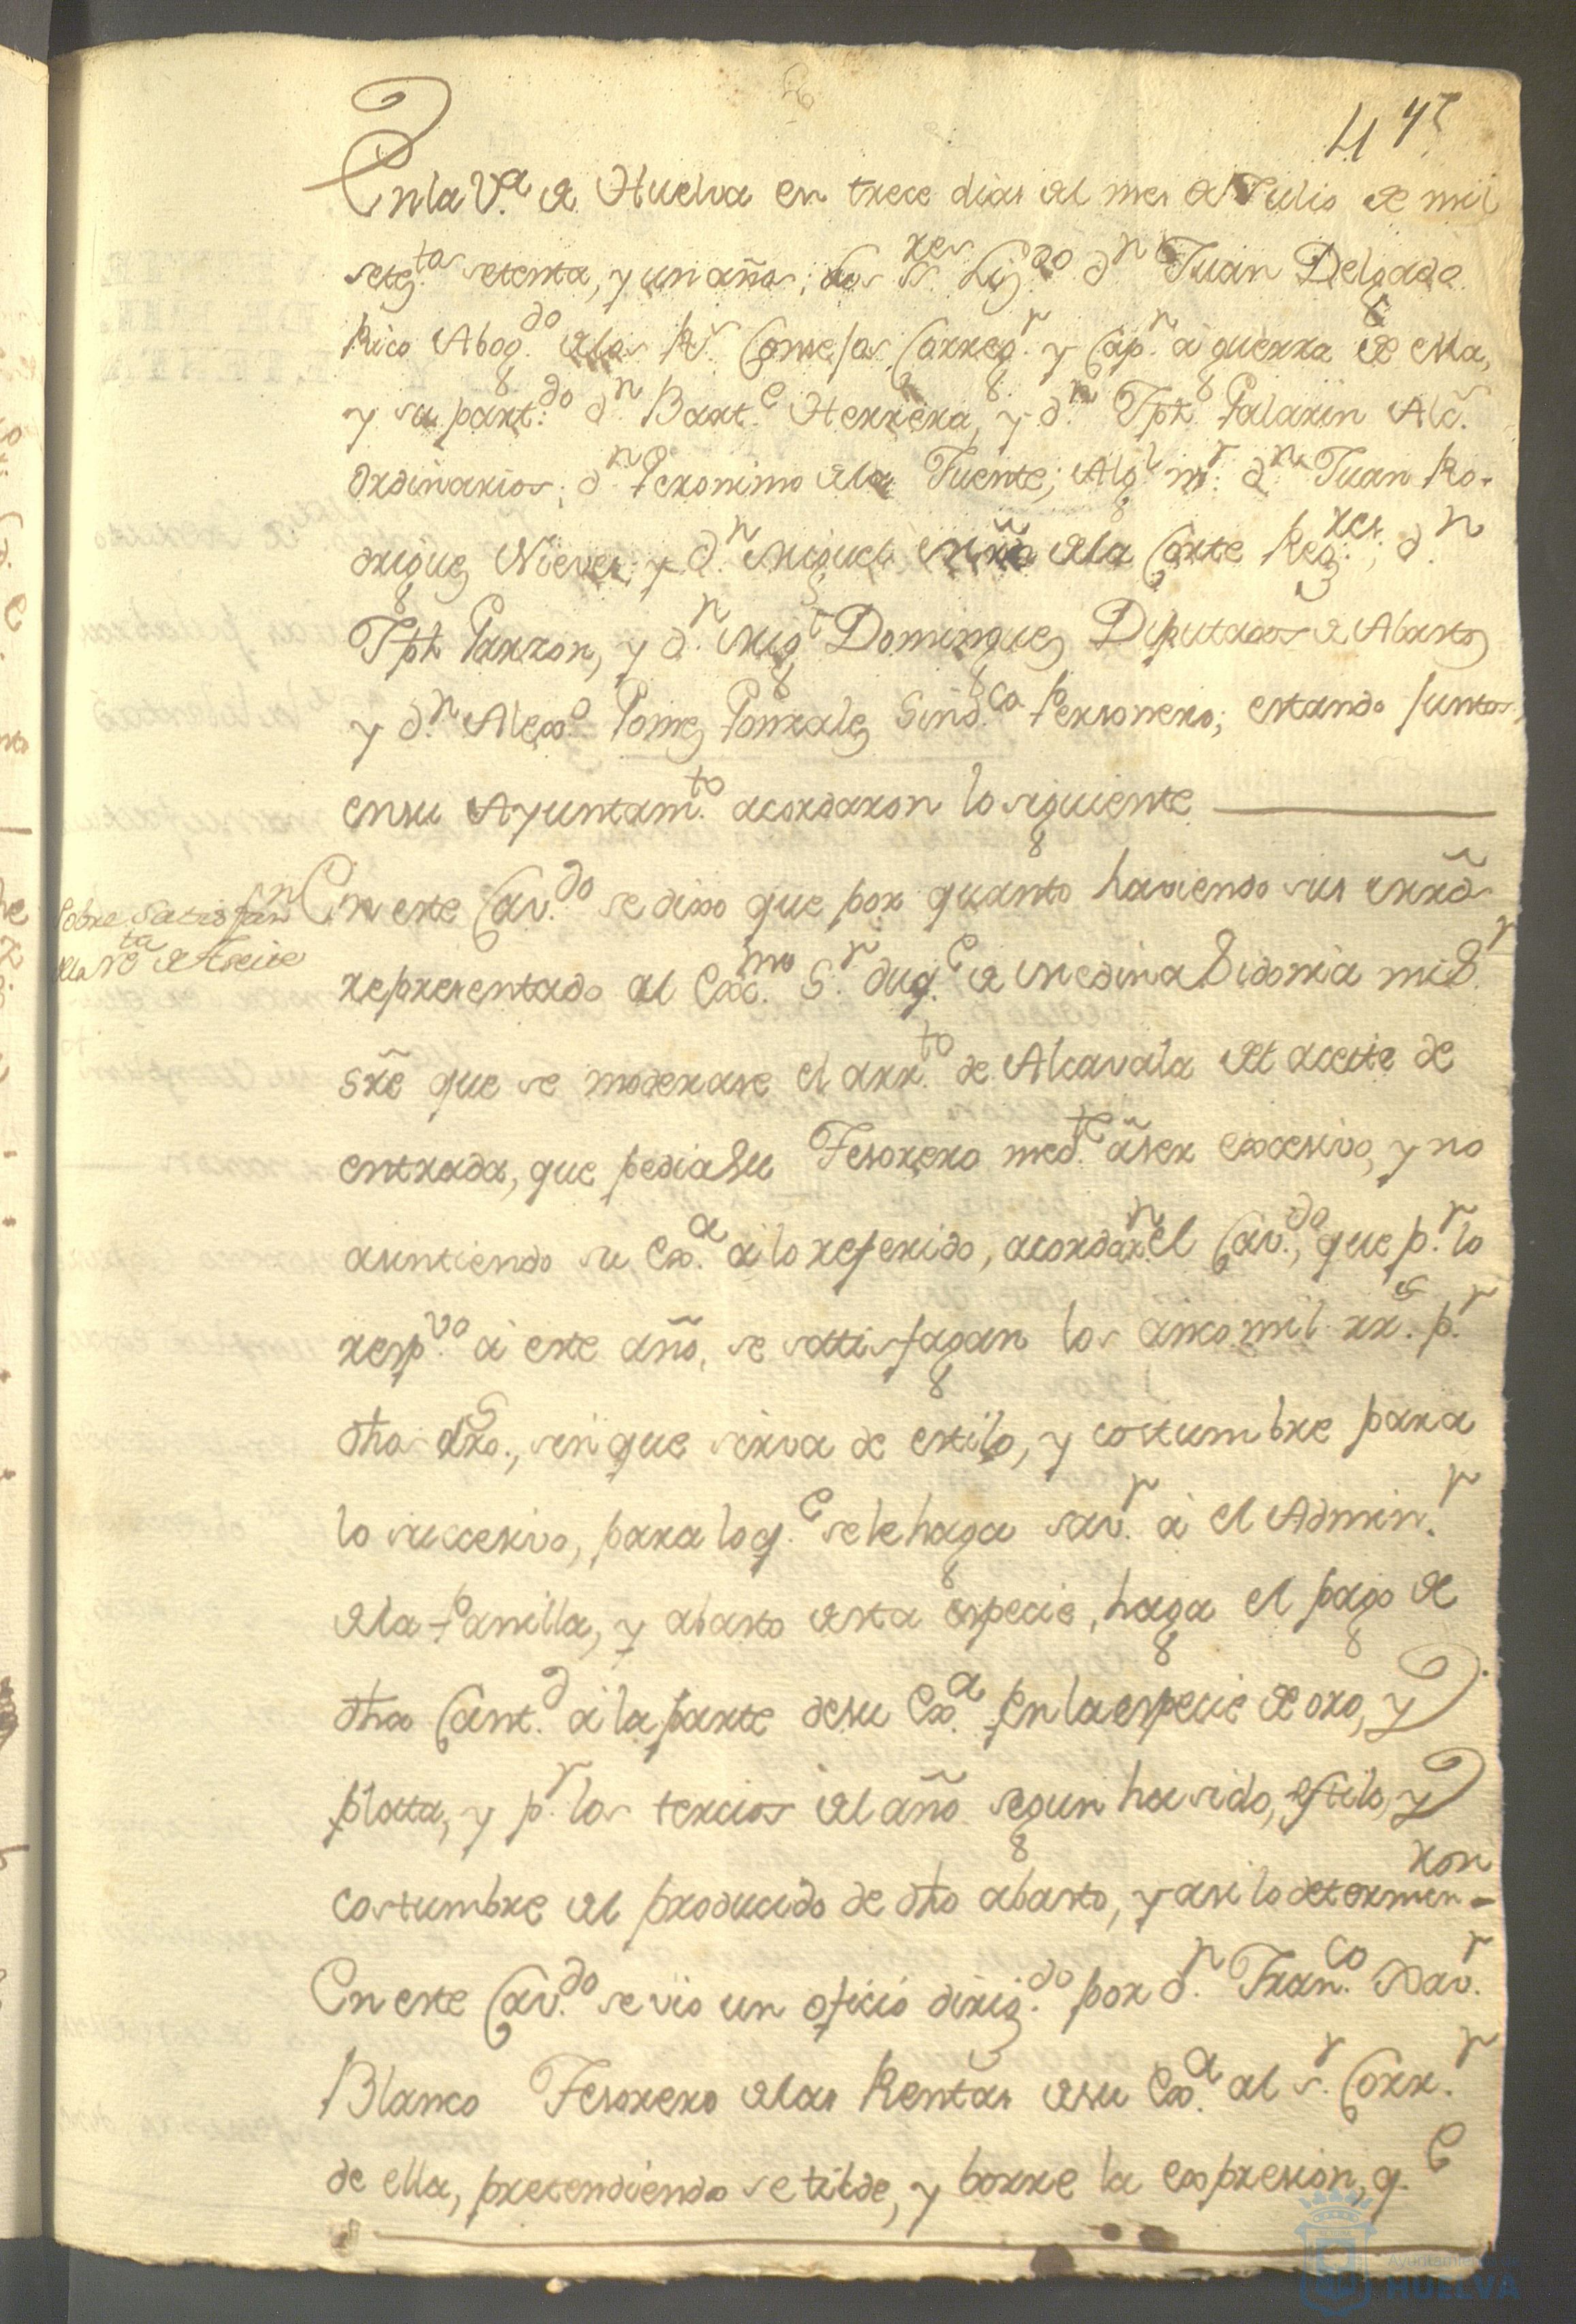 47
En la V.ª de Huelva en trece dias del mes de Julio de mil
seteç.tos setenta, y un años; los SS.res Liz.do d.n Juan Delgado
Rico Abog.do de los R.s Consejos Correg.r y Cap.n à guerra de esta,
y su part.do d.n Bart.e Herrera, y d.n Jph. Galarin Alc.s
Ordinarios; d.n Geronimo de la Fuente; Alg.l m.r d.n Juan Ro-
driguez Nieves; y d.n Miguel de la Corte Reg.res; d.n
Jph Garzon, y d.n Mig.l Dominguez Diputados de Abastos
y d.n Alexo. Gomez Gonzalez Sind.co Personero; estando juntos,
en su Ayuntam.to acordaron lo siguiente
Sobre Satisfaz.n
de la r.ta de Aceite
En este Cav.do se dixo que por quanto haviendo sus mrds
representado al Exc.mo S.r duq.e de Medina Sidonia mi S.r
sre que se moderase el arr.to de Alcavala del aceite de
entrada, que pedia su Tesorero med.te àser excesivo, y no
asintiendo su Ex.a à lo referido, acordar.n el Cav.do, que p.r lo
resp.vo à este año, se satisfagan los cinco mil rr.s p.r
dhos dro.s, sin que sirva de estilo, y costumbre para
lo succesivo, para lo q.e se le haga sav.r à el Admin.r
de la Panilla, y abasto desta especie, haga el pago de
dha Cant.d à la parte de su Ex.a en la especie de oro, y
plata, y p.r los tercios del año segun ha sido, estilo, y
costumbre del producido de dho abasto, y asi lo determin-ron
En este Cav.do se vio un oficio dirig.do por d.n Fran.co Xav.r
Blanco Tesorero de las Rentas de su Ex.a al s.r Corr.r
de ella, pretendiendo se tilde, y borre la expresion, q.e
Ayuntamiento de
HUELVA